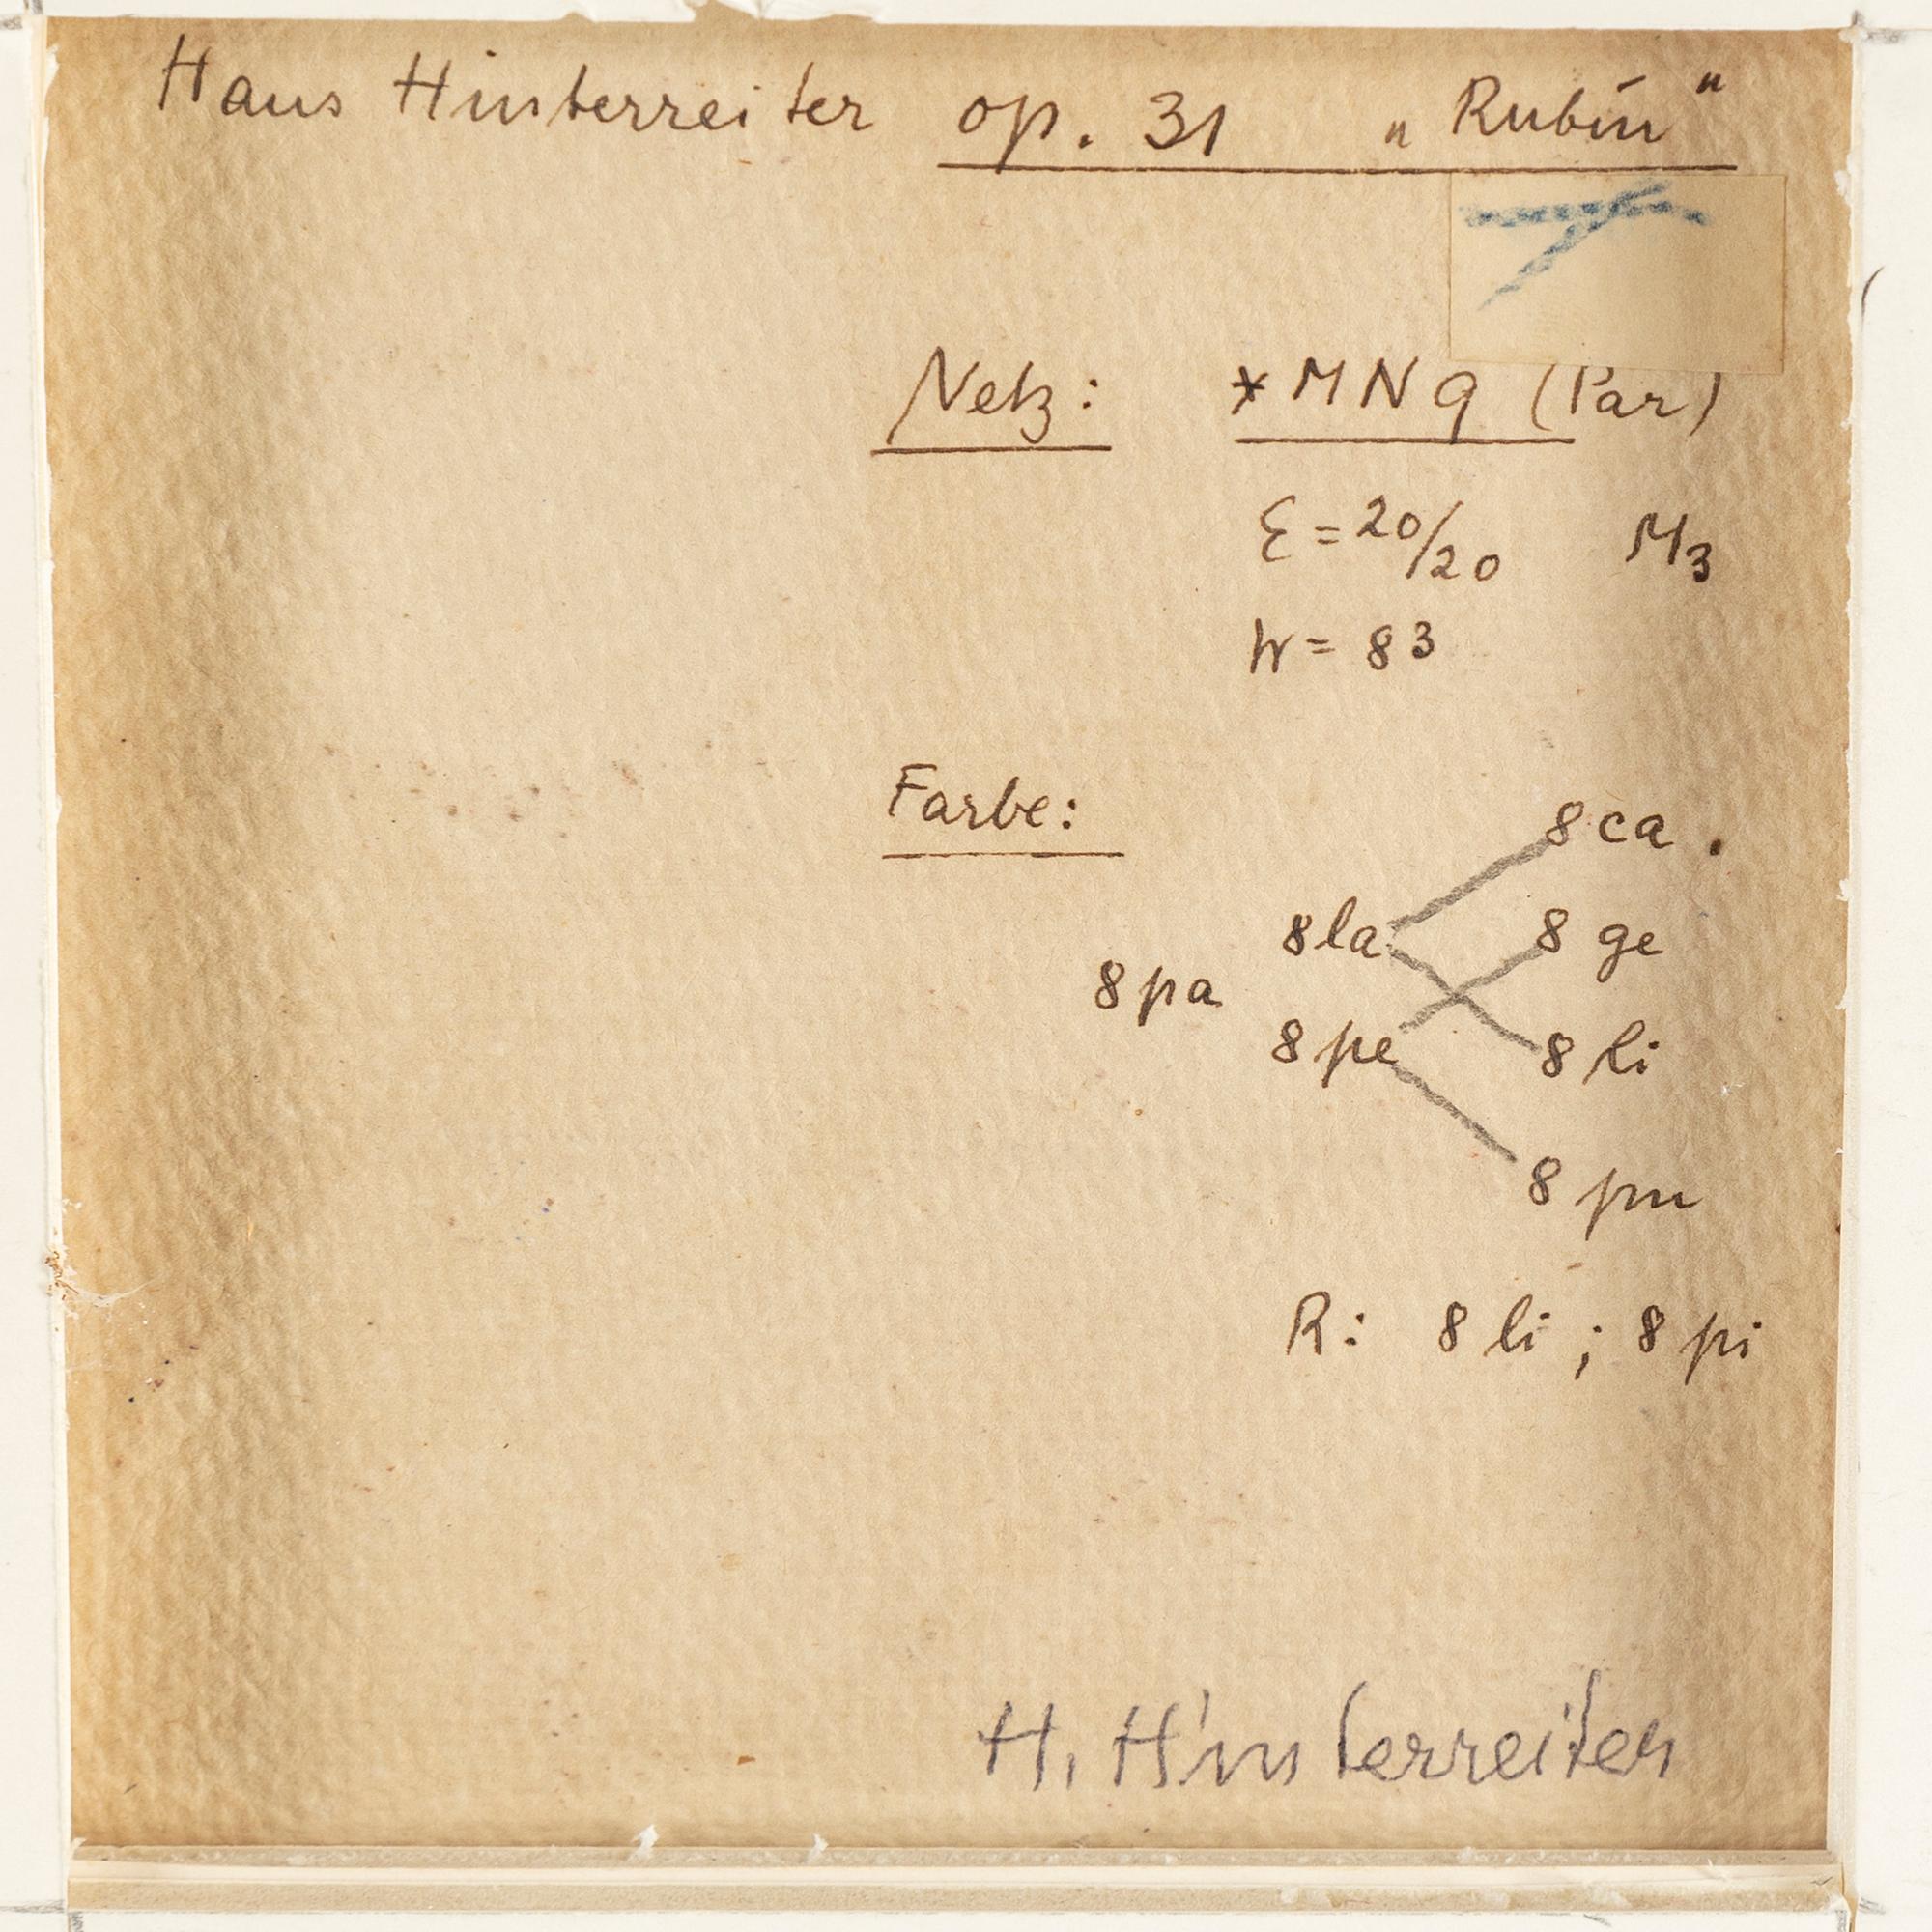 Hans Hinterreiter op. 31 „Rubin"
Netz: *MN9 (Par)
ε = 20/20 M3
W = 83
Farbe:
8 ca .
8 la 8 ge
8 pa
8 pe 8 li
8 pn
R: 8 li ; 8 pi
H. Hinterreiter